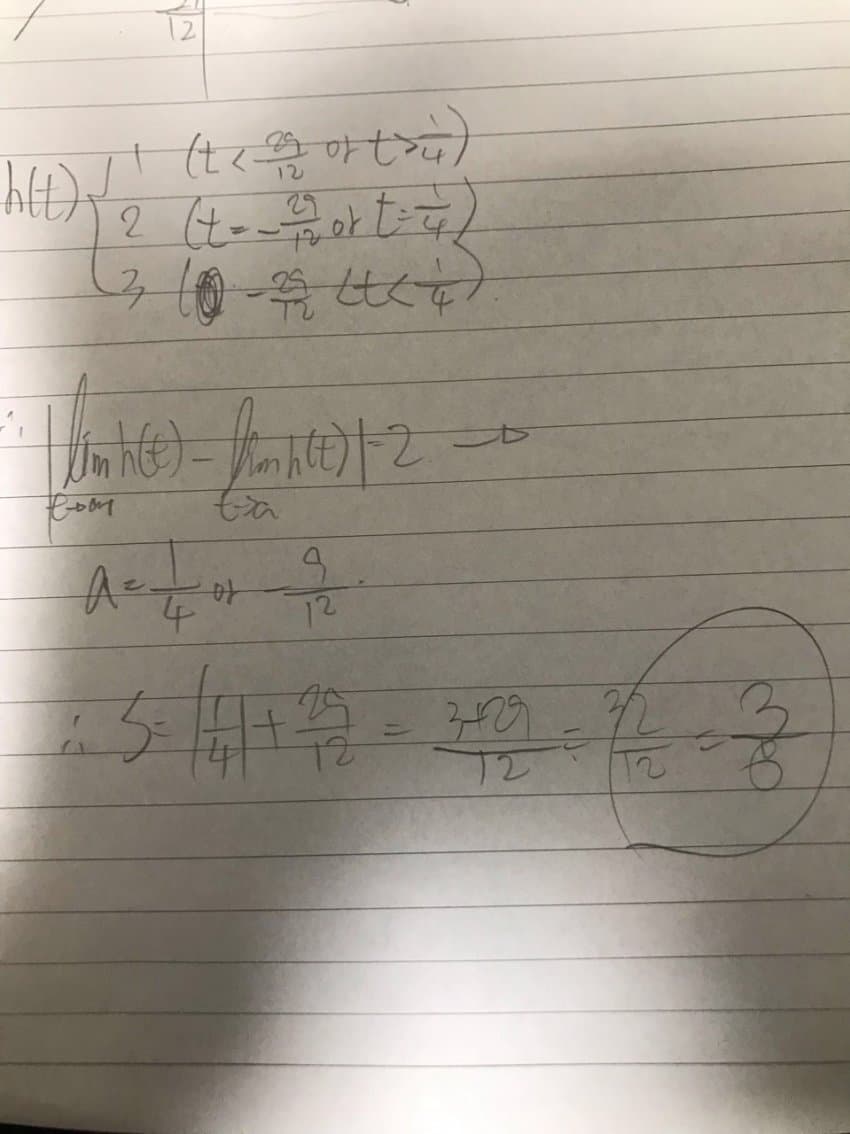 12
h(t) { 1 (t < 29/12 or t > 1/4)
2 (t = -29/12 or t = 1/4)
3 ( -29/12 < t < 1/4)
∴ |lim h(t) - lim h(t)| = 2 →
t→a+ t→a
a = 1/4 or -9/12.
∴ S = |1/4| + 29/12 = 3+29/12 = 32/12 = 3/8